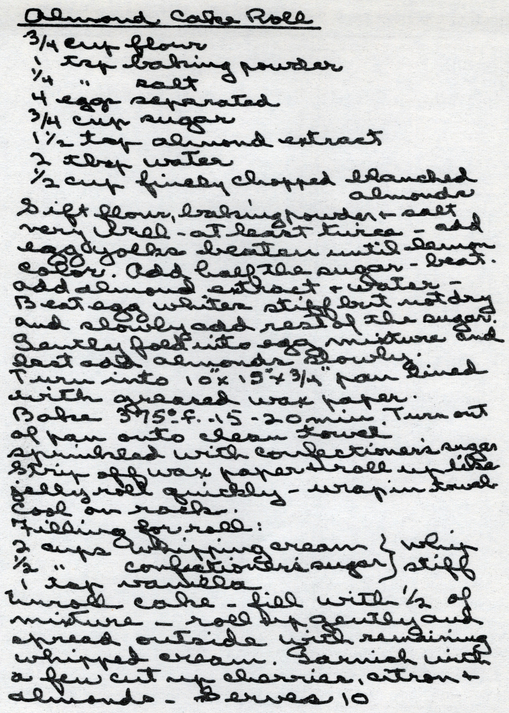 Almond Cake Roll
3/4 cup flour
1 tsp baking powder
1/4 " salt
4 eggs separated
3/4 cup sugar
1 1/2 tsp almond extract
2 tbsp water
1/2 cup finely chopped blanched
almonds
Sift flour, baking powder + salt
very well - at least twice - add
egg yolks beaten until lemon
color. Add half the sugar - beat.
add almond extract + water -
Beat egg whites stiff but not dry
and slowly add rest of the sugar.
Gently fold into egg mixture and
last add almonds slowly.
Turn into 10" x 15" x 3/4" pan lined
with greased wax paper.
Bake 375° F. - 15 - 20 min. Turn out
of pan onto clean towel
sprinkled with confectioner's sugar
Strip off wax paper + roll up like
jelly roll quickly - wrap in towel
Cool on rack.
Filling for roll:
2 cups whipping cream } whip
1/2 " confectioner's sugar } stiff
1 tsp vanilla
Unroll cake - fill with 1/2 of
mixture - roll up gently and
spread outside with remaining
whipped cream. Garnish with
a few cut up cherries, citron +
almonds - Serves 10